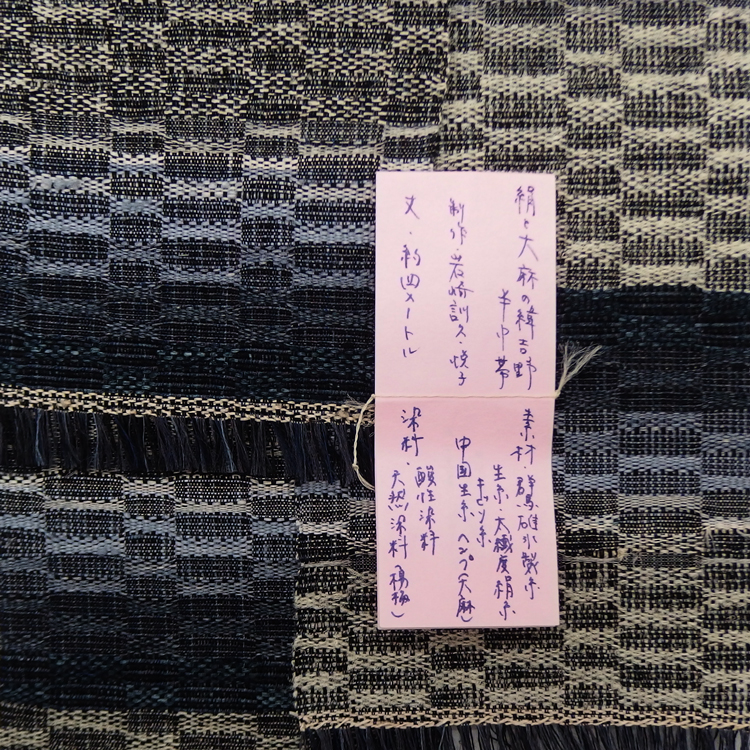 絹と大麻の緯吉野
半巾帯
制作・岩崎訓久・悦子
丈・約四メートル
素材・群馬碓氷製糸
生糸・太繊度絹糸
キビソ糸
中国生糸 ヘンプ(大麻)
染料・
酸性染料
天然染料(楊梅)